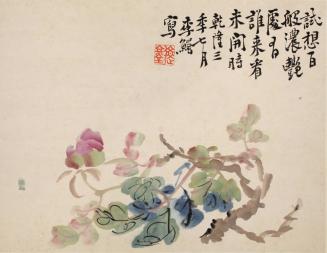 試想百
般濃艷
處有
誰来省
未開時
乾隆三
季七月
李鱓
寫